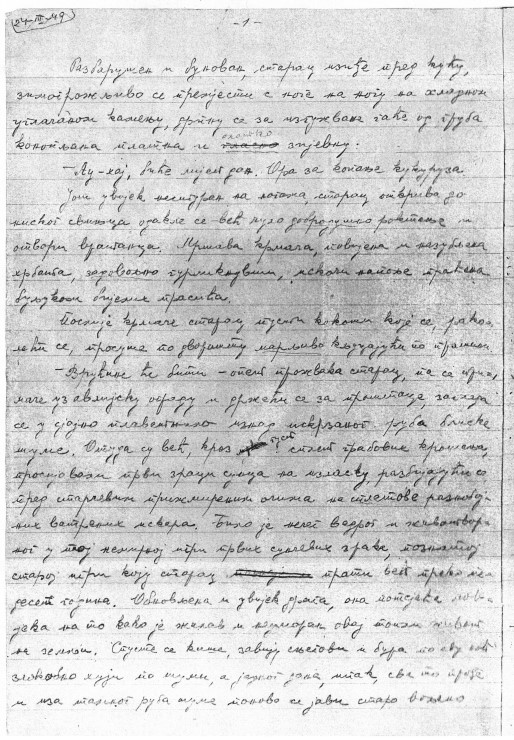 24-III-49
-1-
Разбарушен и бунован, старац изиђе пред кућу,
зимогрожљиво се премјести с ноге на ногу на хладном
углачаном камену, дрпну се за изгужване гаће од груба
конопљана платна и гласно зијевну.
- Ау-хај, биће лијеп дан. Ора за копање кукуруза.
Још увијек несигуран на ногама старац отккрива до
ниског свињца одакле се већ чуло добродушно роктање и
отвори вратанца. Мршава крмача, повијена и назубљена
хрбата, задовољно гурликнувши, искочи напоље праћена
буљуком бијелих прасића.
Послије крмаче старац пусти кокоши које се, рако-
лећи се, просуше по дворишту марљиво кљуцајући по прашини.
- Врућине ће бити - опет прожвака старац, па се
маче уз авлијску ограду и држећи се за прошћаце, загледа
се у сјајно плаветнило изнад искрзаног руба блиске
шуме. Отуда су већ, кроз густ сплет грабових крошања,
просијавали први зраци сунца на изласку, разбијајући се
пред старчевим прижмиреним очима на сплетове разноброј-
них ватрених искера. Било је нечег ведрог и животвор-
ног у тој немирној игри првих сунчевих зрака, познатој
старој игри коју старац прати већ преко пе-
десет година. Обновљена и увијек драга, она потсјећа чов-
јека на то како је жилав и неуморан овај топли живот
на земљи. Спусте се кише, завију сњегови и бура по
злокобно хуји по шуми, а једног дана, ипак, све то прође
и иза танког руба шуме поново се јави старо